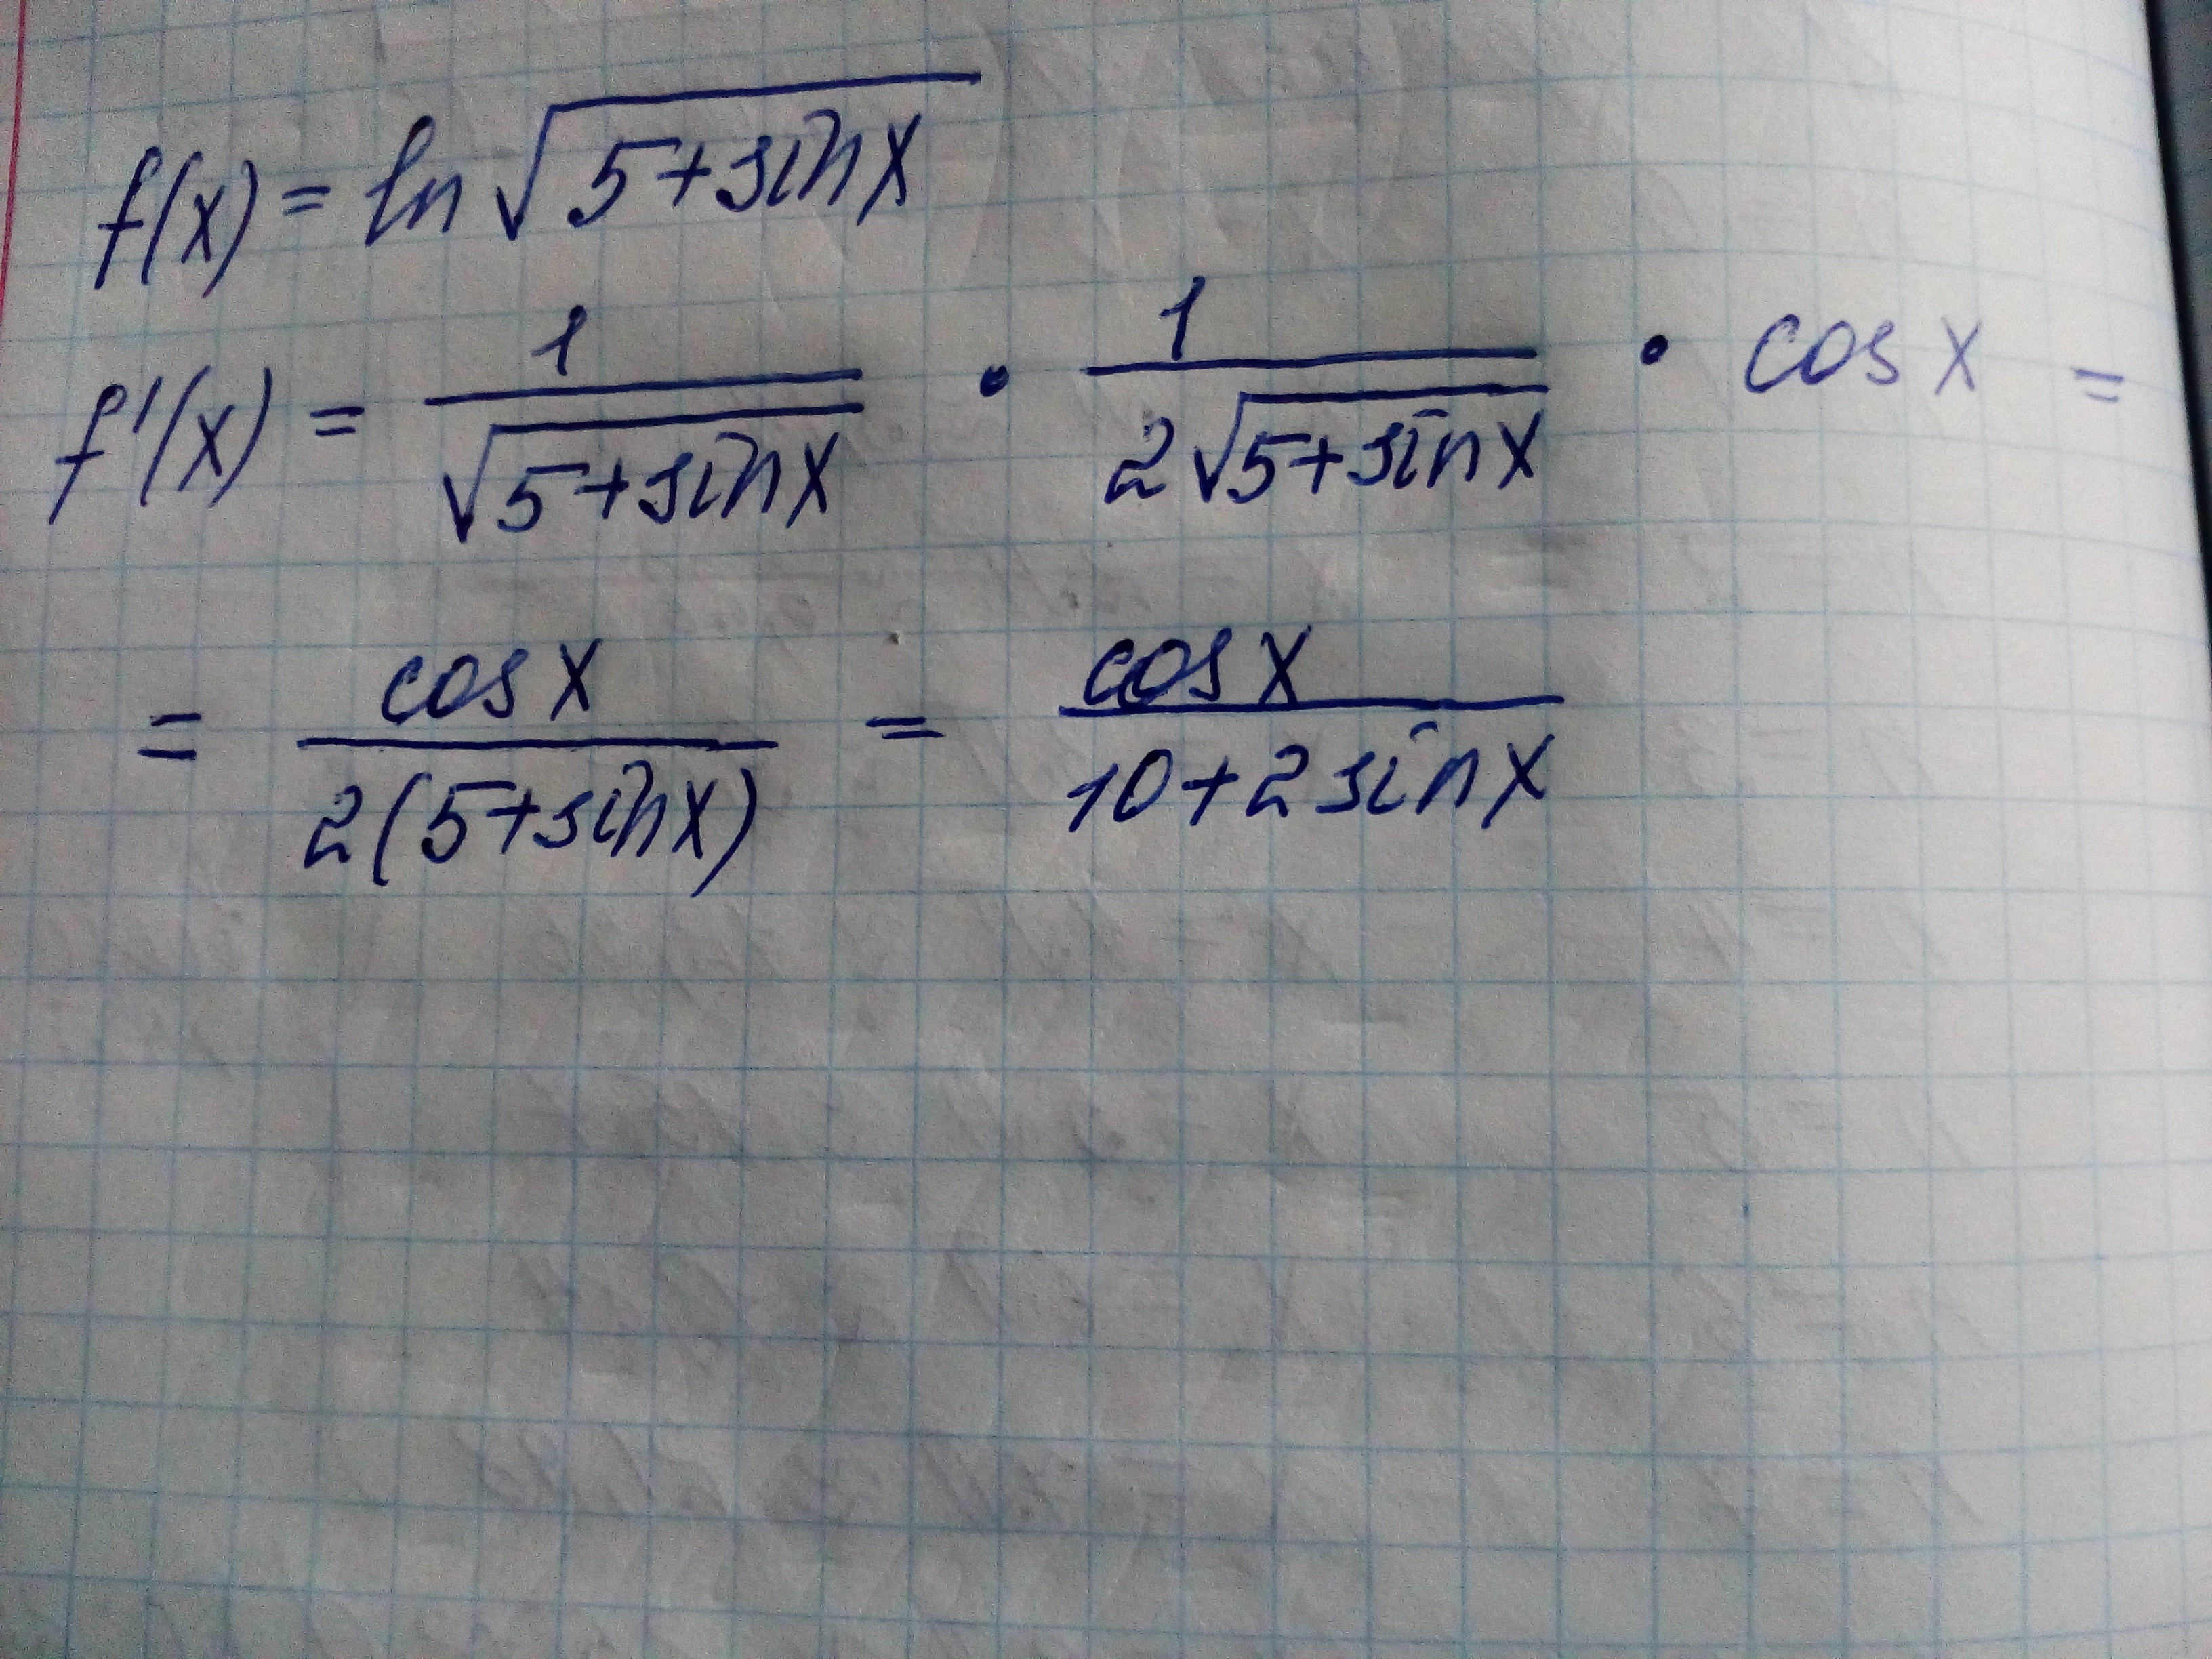 f(x) = ln √(5+sin x)
f'(x) = 1/√(5+sin x) · 1/(2√(5+sin x)) · cos x =
= cos x/(2(5+sin x)) = cos x/(10+2 sin x)